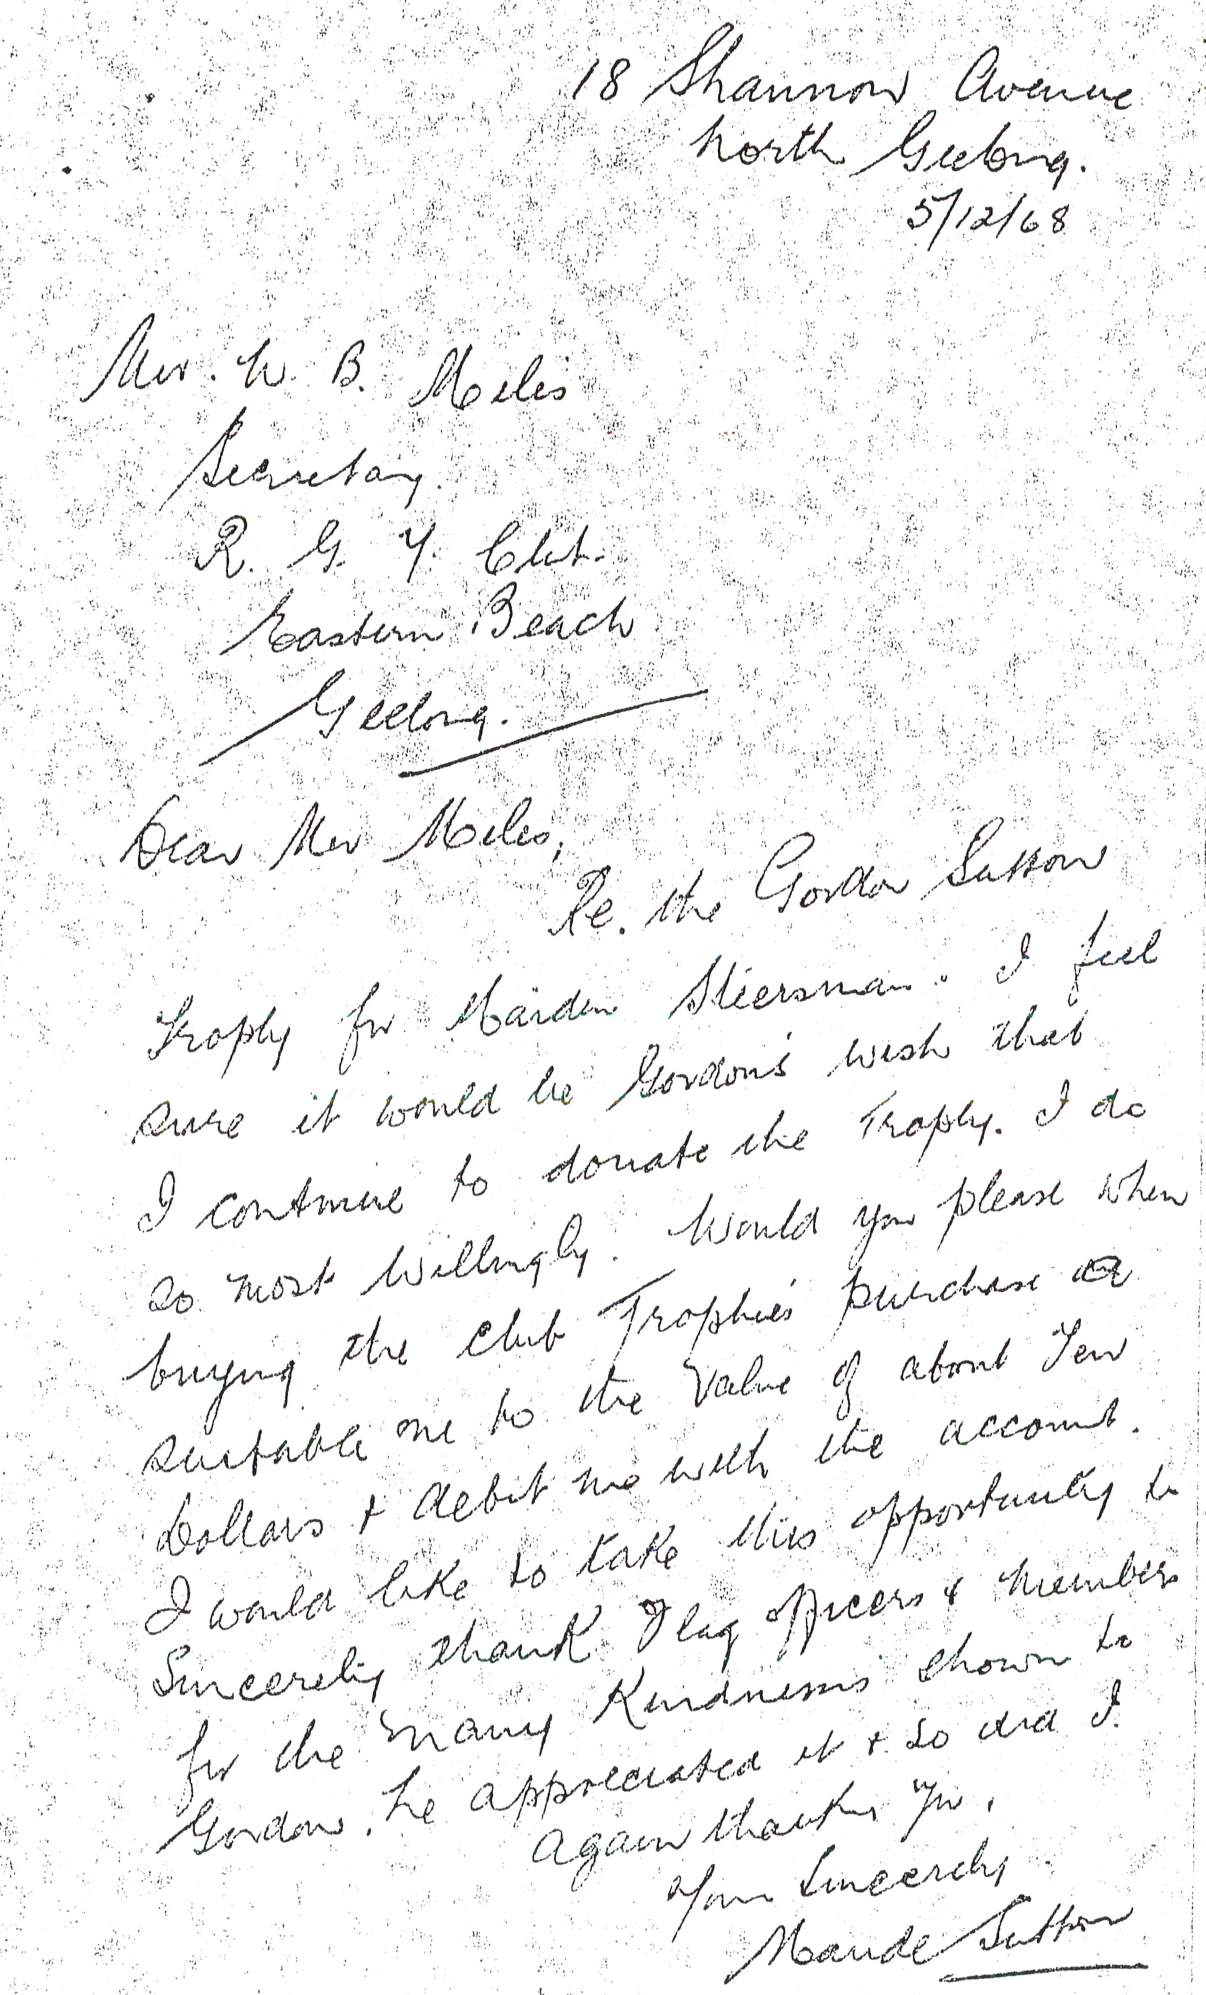 18 Shannon Avenue
North Geelong.
5/12/68
Mr. W. B. Miles
Secretary.
R. G. Y. Club.
Eastern Beach
Geelong.
Dear Mr Miles,
Re. the Gordon Sutton
Trophy for Maiden Steersman. I feel
sure it would be Gordon's wish that
I continue to donate the Trophy. I do
so most willingly. Would you please when
buying the Club Trophies purchase a
suitable one to the Value of about Ten
Dollars & debit me with the account.
I would like to take this opportunity to
Sincerely thank Flag officers & Members
for the many Kindness's shown to
Gordon, he appreciated it & so did I.
Again thanks you,
Yours Sincerely
Maude Sutton